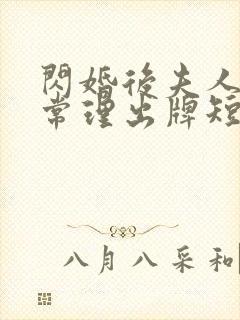 閃婚後夫人
常理出牌短
八月八采和